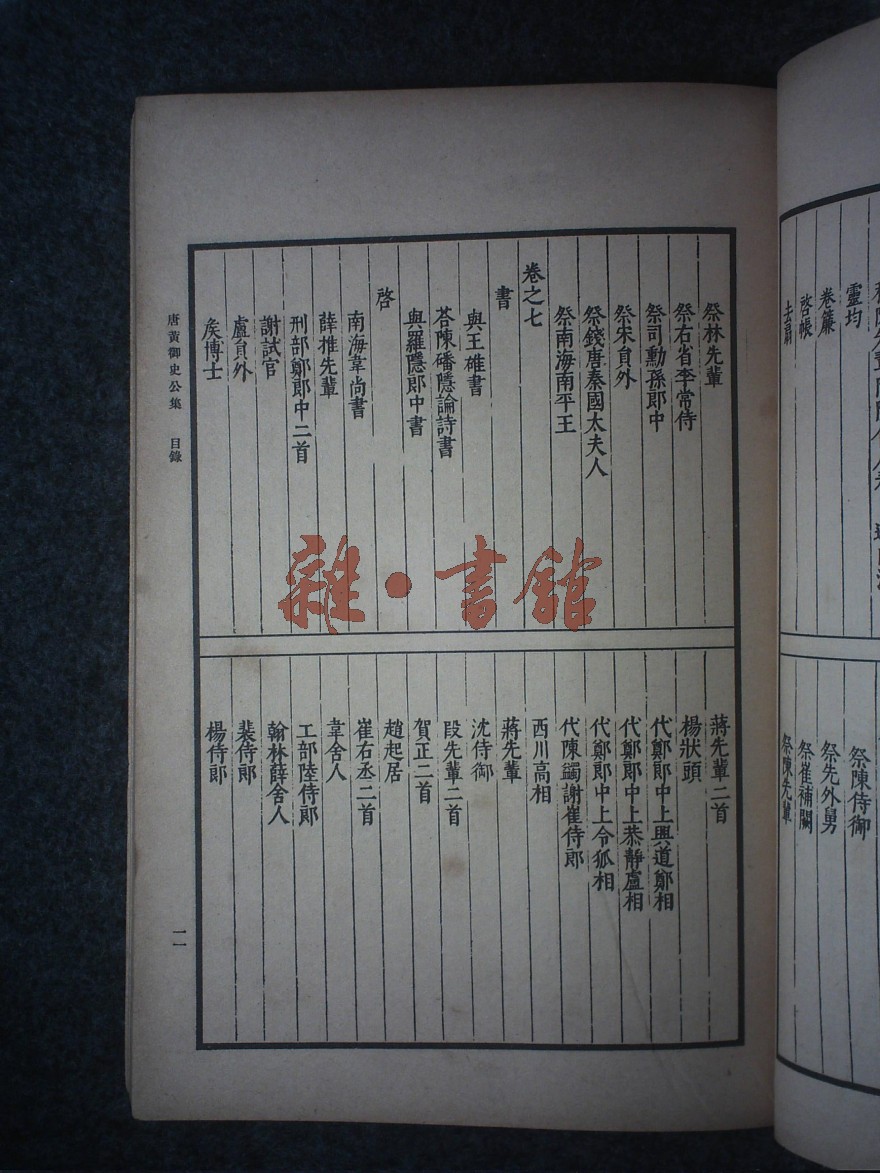 靈均
卷簾
啓帳
去扇
祭陳侍御
祭先外舅
祭崔補闕
祭陳先輩
祭林先輩
祭右省李常侍
祭司勳孫郎中
祭宋負外
祭錢唐秦國太夫人
祭南海南平王
卷之七
書
與王雄書
荅陳磻隱論詩書
與羅隱郎中書
啓
南海韋尚書
薛推先輩
刑部鄭郎中二首
謝試官
盧負外
矦博士
蔣先輩二首
楊狀頭
代鄭郎中上興道鄭相
代鄭郎中上恭靜盧相
代鄭郎中上令狐相
代陳蠲謝崔侍郎
西川高相
蔣先輩
沈侍御
段先輩二首
賀正二首
趙起居
崔右丞二首
韋舍人
工部陸侍郎
翰林薛舍人
裴侍郎
楊侍郎
唐黃御史公集 目錄
一一
雜·書館